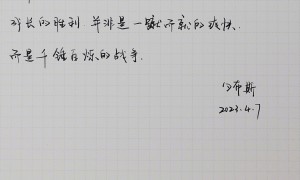 成长的胜利 并非是一蹴而就的爽快.
而是千锤百炼的战争.
布斯
2023.4.7